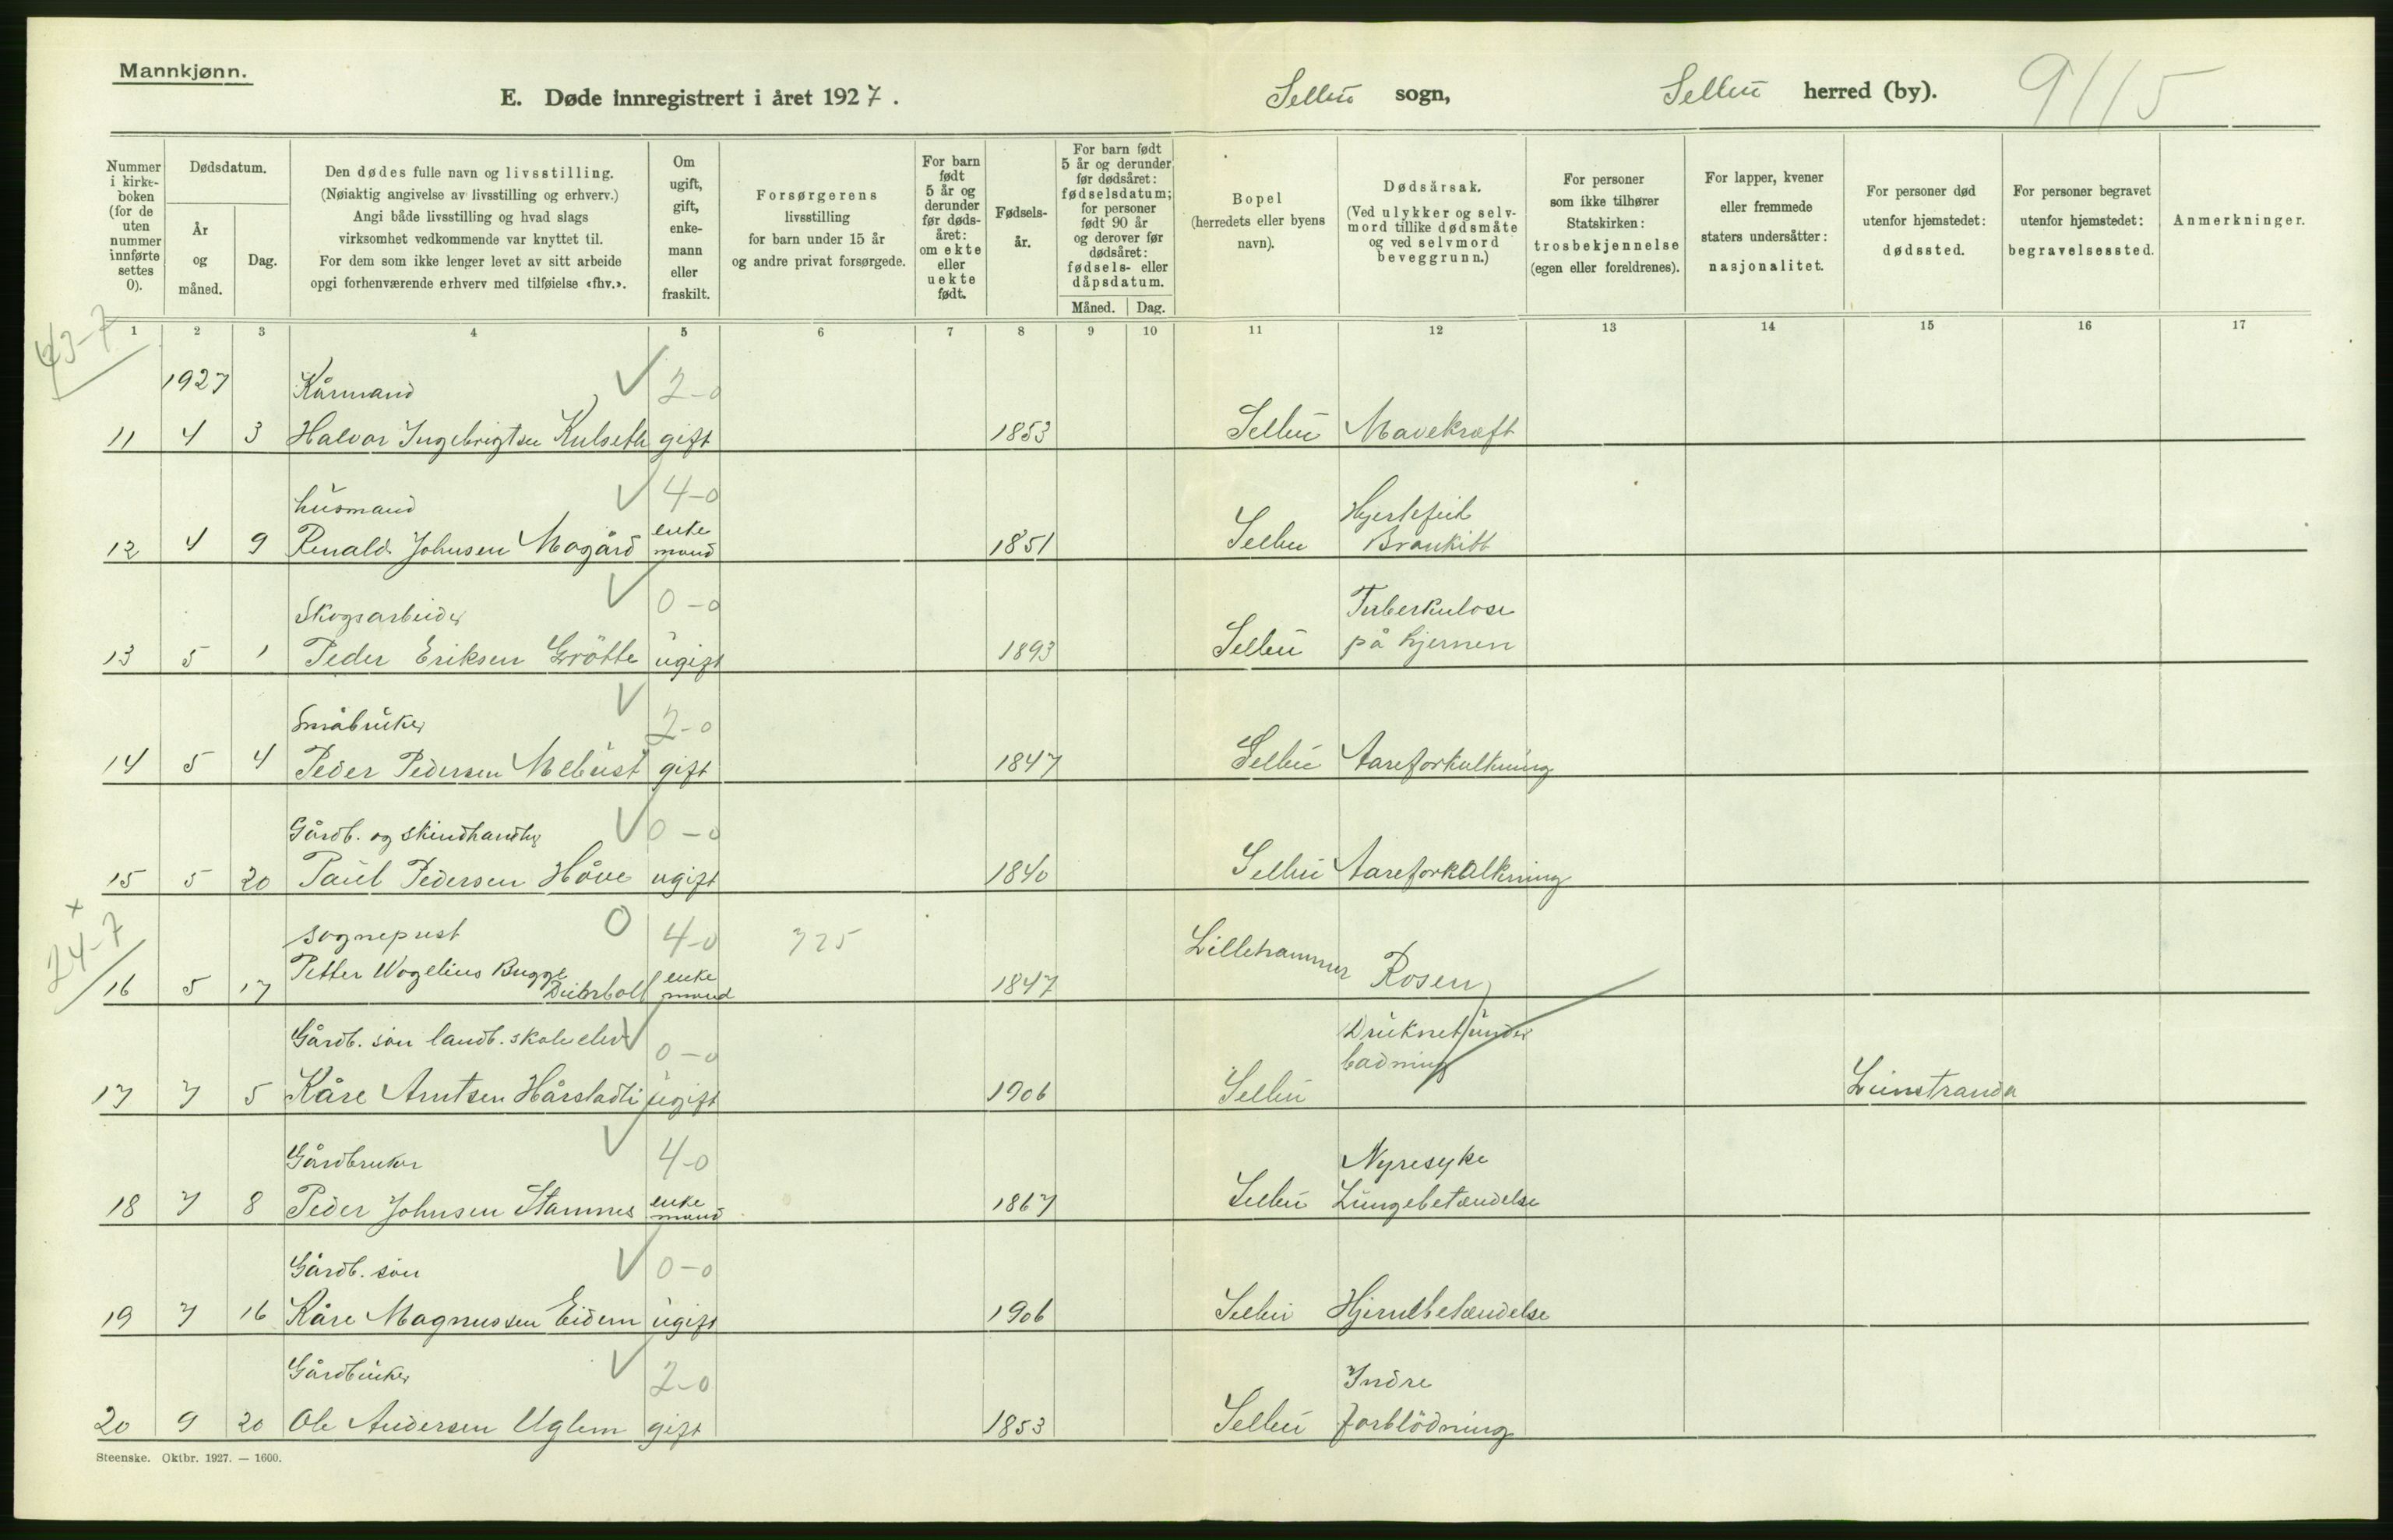 Mannkjønn.
E. Døde innregistrert i året 1927.
Selbu sogn,
Selbu herred (by).
9115
Nummer i kirke-boken (for de uten nummer innførte settes 0).
Dødsdatum.
År og måned.
Dag.
Den dødes fulle navn og livsstilling.
(Nøiaktig angivelse av livsstilling og erhverv.)
Angi både livsstilling og hvad slags
virksomhet vedkommende var knyttet til.
For dem som ikke lenger levet av sitt arbeide
opgi forhenværende erhverv med tilføielse «fhv.».
Om ugift, gift, enke-mann eller fraskilt.
Forsørgerens
livsstilling
for barn under 15 år
og andre privat forsørgede.
For barn født 5 år og derunder før døds-året: om ekte eller uekte født.
Fødsels-år.
For barn født
5 år og derunder
før dødsåret:
fødselsdatum;
for personer
født 90 år
og derover før
dødsåret:
fødsels- eller
dåpsdatum.
Måned.
Dag.
Bopel
(herredets eller byens
navn).
Dødsårsak.
(Ved ulykker og selv-
mord tillike dødsmåte
og ved selvmord
beveggrunn.)
For personer
som ikke tilhører
Statskirken:
trosbekjennelse
(egen eller foreldrenes).
For lapper, kvener
eller fremmede
staters undersåtter:
nasjonalitet.
For personer død
utenfor hjemstedet:
dødssted.
For personer begravet
utenfor hjemstedet:
begravelsessted.
Anmerkninger.
1 2 3 4 5 6 7 8 9 10 11 12 13 14 15 16 17
43-7
1927 Kårmand 2-0
11 4 3 Halvor Ingebrigtsen Kulseth gift 1853 Selbu Mavekræft
husmand 4-0 Hjertefeil
12 4 9 Renald Johnsen Mogård enke mand 1851 Selbu Bronkitt
Skogsarbeider 0-0 Tuberkulose
13 5 1 Peder Eriksen Grötte ugift 1893 Selbu på hjernen
Småbruker 2-0
14 5 4 Peder Pedersen Mebust gift 1847 Selbu Aareforkalkning
Gårdb. og skindhandler 0-0
15 5 20 Paul Pedersen Håve ugift 1840 Selbu Aareforkalkning
x
24-7
sogneprest 0 4-0 325
16 5 17 Petter Wogelius Bugge enke mand 1847 Lillehammer Rosen
Gårdb. sön landb. skole elev 0-0 Druknet under
badning
17 7 5 Kåre Arntsen Hårstadli ugift 1906 Selbu Leinstranda
Gårdbruker 4-0 Nyresyke
18 7 8 Peder Johnsen Stamnes enke mand 1867 Selbu Lungebetændelse
Gårdb. sön 0-0
19 7 16 Kåre Magnussen Eidem ugift 1906 Selbu Hjernebetændelse
Gårdbruker 2-0 Indre
20 9 20 Ole Andersen Uglem gift 1853 Selbu forblödning
Steenske. Oktbr. 1927. — 1600.